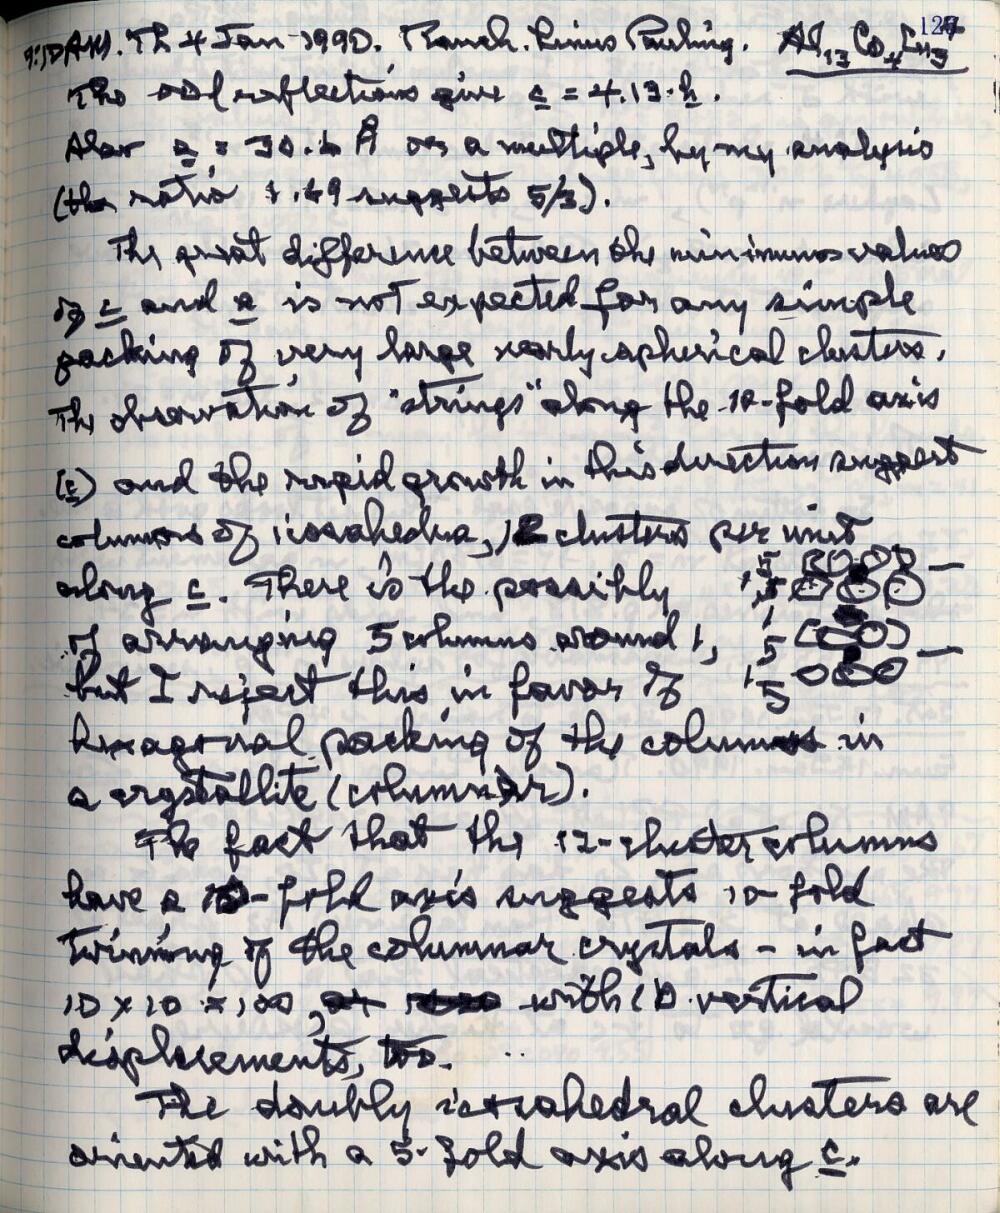 AM. Th 4 Jan 1990. Ranch. Linus Pauling. Al13Co4Cu3
The 00l reflections give c = 4.13 Å.
Also a = Å or a multiple, by my analysis
(the ratio suggests 5/3).
The great difference between the minimum values
of c and a is not expected for any simple
packing of very large nearly spherical clusters.
The observation of "strings" along the 10-fold axis
(c) and the rapid growth in this direction suggest
columns of icosahedra, 12 clusters per unit
along c. There is the possibly
of arranging 5 columns around 1,
but I reject this in favor of
hexagonal packing of the columns in
a crystallite (columnar).
1 5 1 5 1 5 1 5
The fact that the 12-cluster columns
have a 10-fold axis suggests 10-fold
twinning of the columnar crystals - in fact
10 x 10 x 100, with 10 vertical
displacements, too.
The doubly icosahedral clusters are
oriented with a 5-fold axis along c.